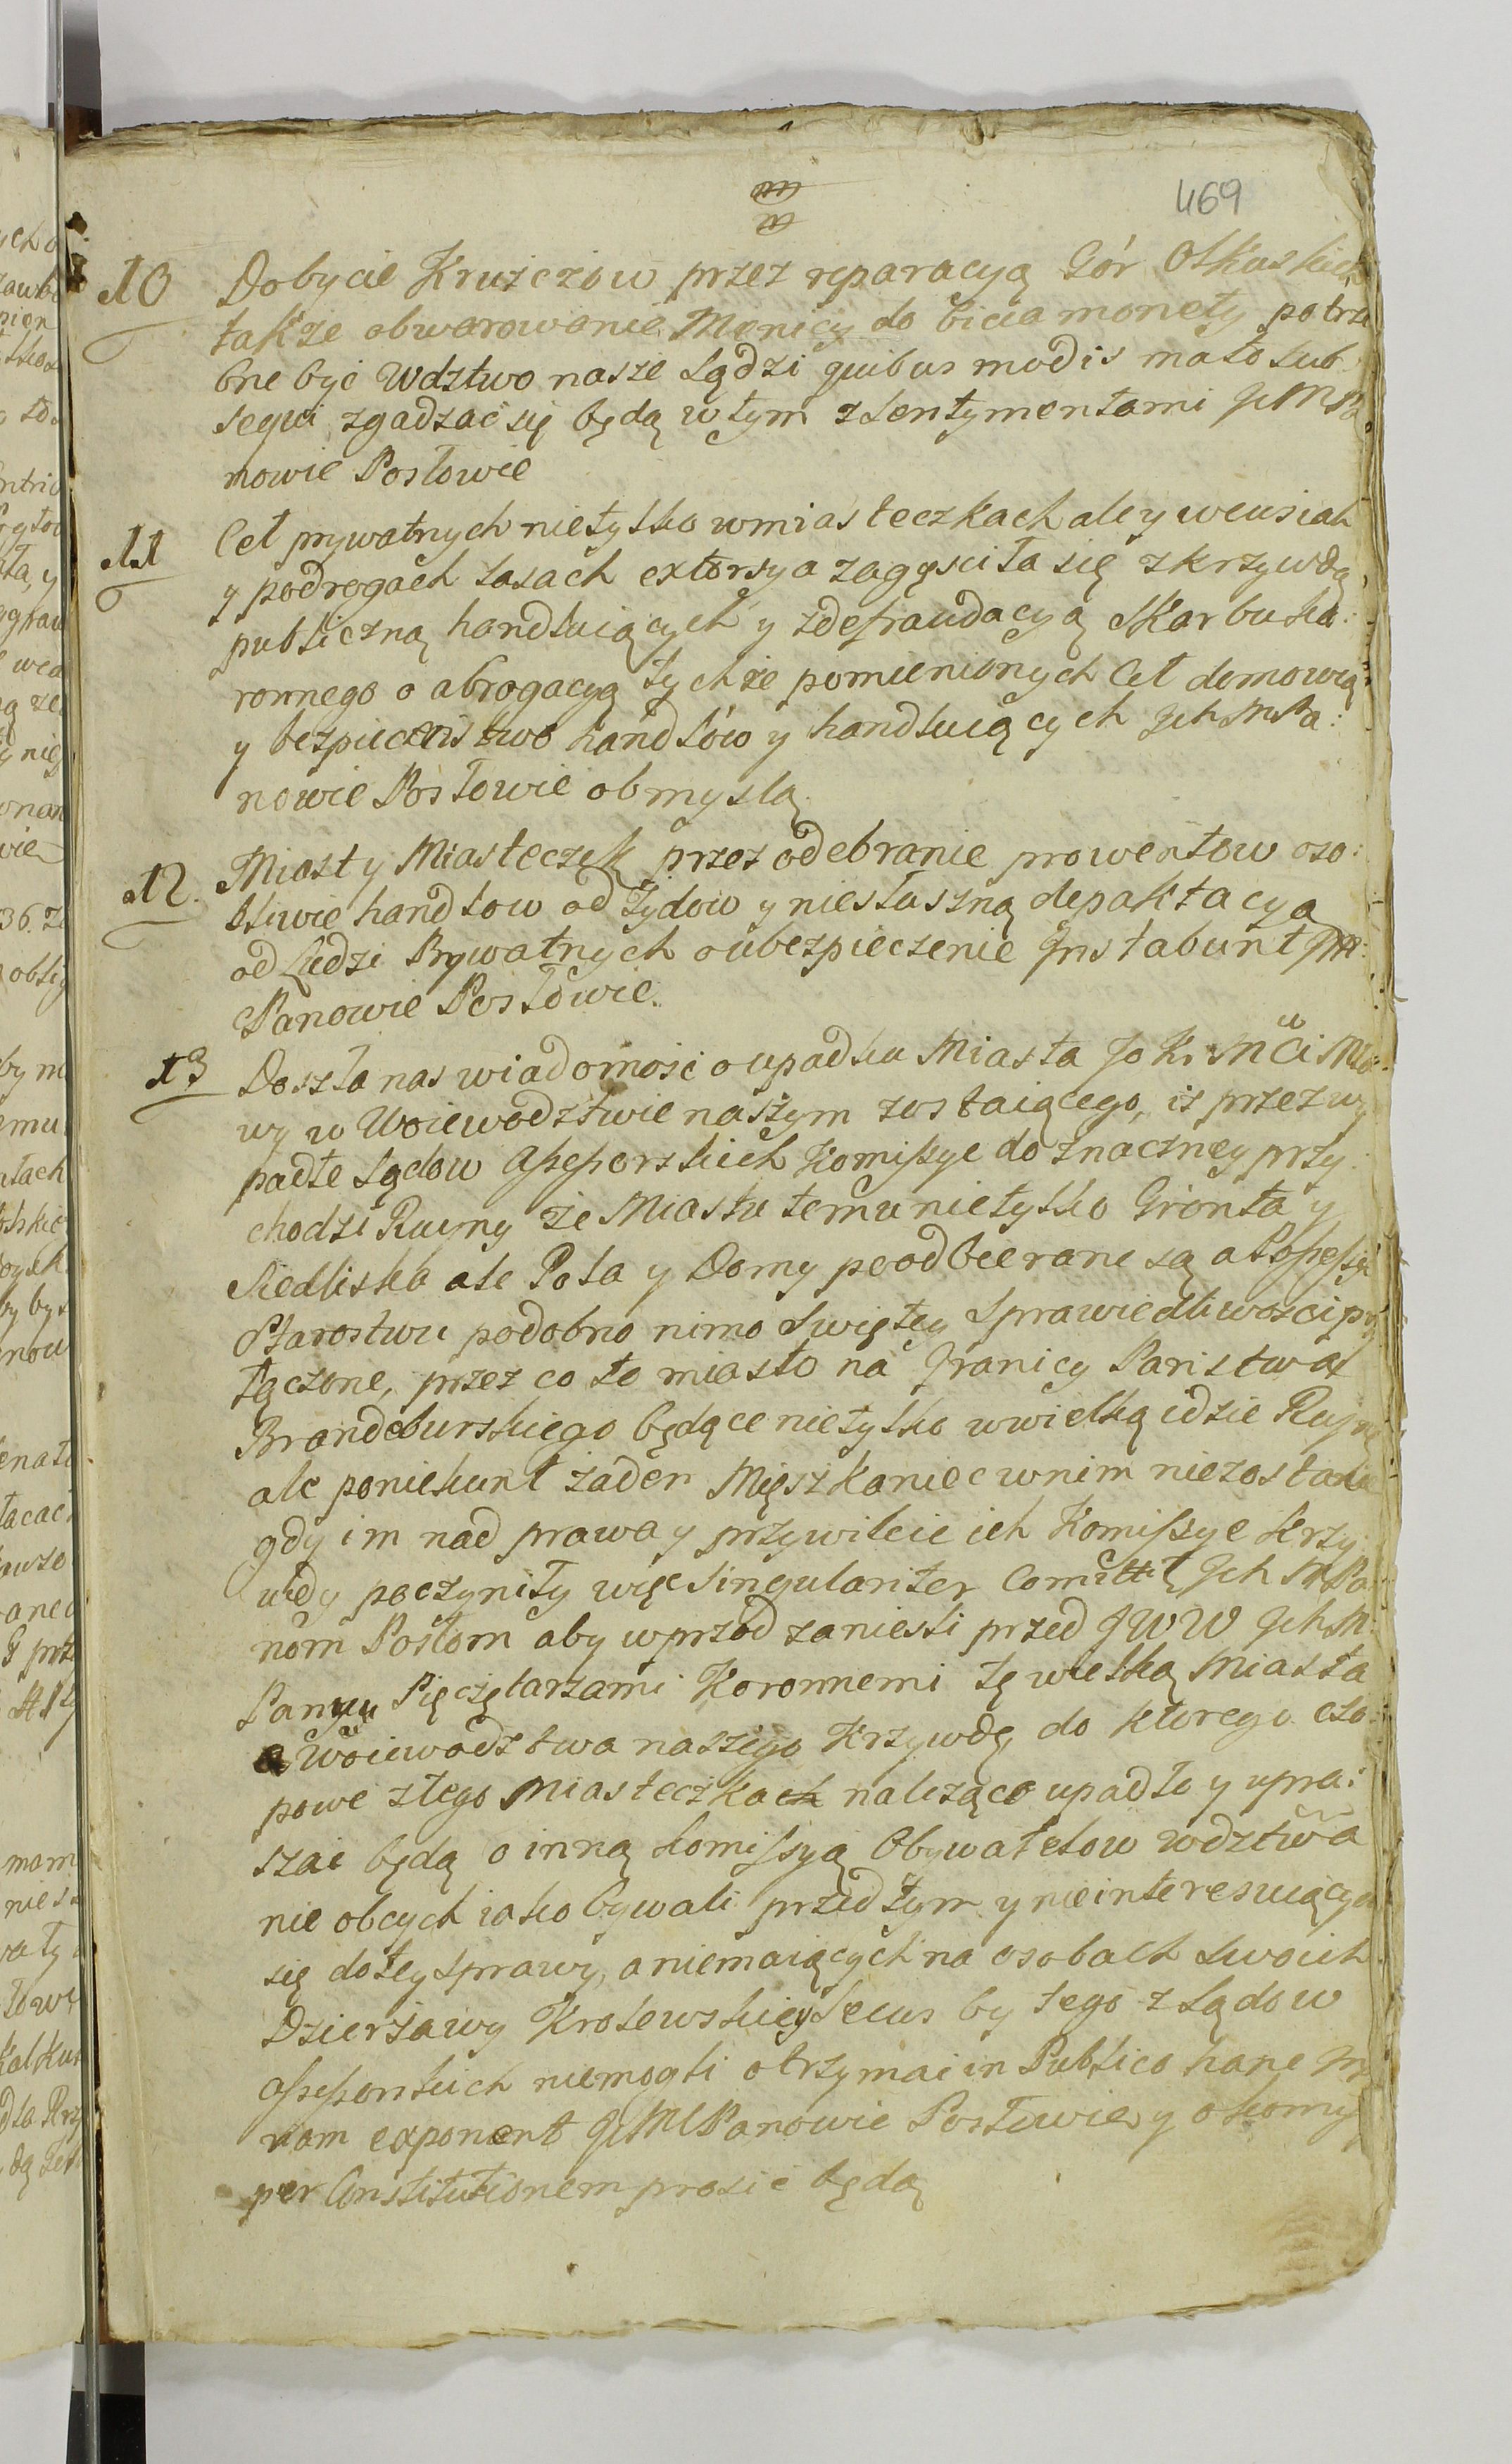 469
10 Dobycie Kruszczow przez reparacyą Gór Olkuskich
także obwarowanie Menicy do bicia monety potrze
bne być Wdztwo nasze sądzi quibus modis mato sub
sequi zgadzać się będą w tym z sentymentami JchMPa
nowie Posłowie
11 Cel prywatnych nietylko wmiasteczkach ale y weusiah
y podrogach lasach extorsya zagęsciła się zkrzywdą
publiczną handluiących y zdefraudacyą Skarbu ko:
ronnego o abrogacyą tychże pomienionych Cel domowią
y bezpieczenstwo handlów y handluiących JchMPa:
nowie Posłowie obmyslą
12. Miast y Miasteczek przez odebranie prowentow oso:
bliwie handlow od żydow y niesłuszną depaktacyą
od Ludzi Prywatnych o ubezpieczenie Instabunt JM:
Panowie Posłowie.
13 Doszła nas wiadomość o upadku Miasta Jo K. Mći Mła:
wy w Woiewodztwie naszym zostaiącego, iż przez wy
padłe Sądow Assessorskich Komissye do znaczney przy
chodzi Ruyny że Miastu temu nietylko Gronta y
Siedliska ale Pola y Domy poodbierane są a Possessyi
Starostwu podobno nimo Swiętey Sprawiedliwości przy
łączone, przez co to miasto na Granicy Panstwa
Brandeburskiego będące nietylko wwielką idzie Ruynę
ale poniekunt żaden Mięszkaniec wnim niezostanie
gdy im nad prawa y przywileie ich Komissye krzy
wdy poczyniły więc Singulariter Comittt JchMPa
nom Posłom aby wprzod zaniesli przed JWW JchM:
Pany Pięczętarzami Koronnemi tę wielką Miasta
a Woiewodztwa naszego Krzywdę do ktorego czo:
powe ztego Miasteczka należące upadło y upra:
szać będą o inną komissyą Obywatelow wdztwa
nie obcych iako bywali przed tym y nieinteresuiących
się do tey sprawy, a niemaiących na osobach swoich
Dzierżawy Krolewskiey Secus by tego z Sądow
Assessorskich niemogli otrzymać in Publico hanc In
riam exponent JchMPanowie Posłowie y o komys
per Constitutionem prosić będą